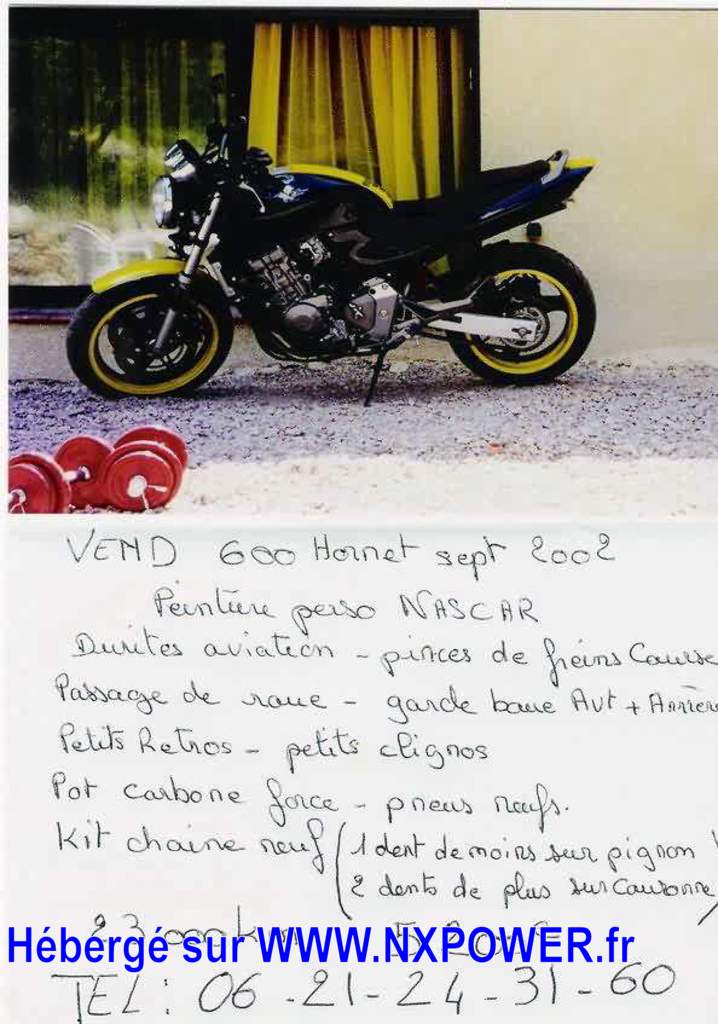 VEND 600 Hornet sept 2002
Peinture perso NASCAR
Durites aviation - pinces de freins Course
Passage de roue - garde boue Avt + Arrière
Petits Retros - petits clignos
Pot carbone force - pneus neufs.
Kit chaine neuf (1 dent de moins sur pignon
2 dents de plus sur couronne)
23 000 km
Hébergé sur WWW.NXPOWER.fr
TEL : 06 - 21 - 24 - 31 - 60